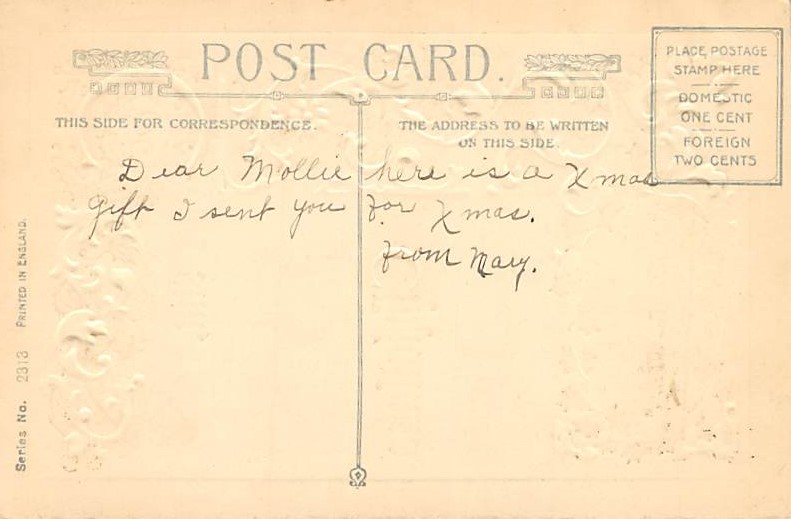 POST CARD.
PLACE POSTAGE
STAMP HERE
DOMESTIC
ONE CENT
FOREIGN
TWO CENTS
THIS SIDE FOR CORRESPONDENCE.
THE ADDRESS TO BE WRITTEN
ON THIS SIDE.
Dear Mollie here is a Xmas
gift I sent you for Xmas.
from Mary.
Series No. 2313 PRINTED IN ENGLAND.